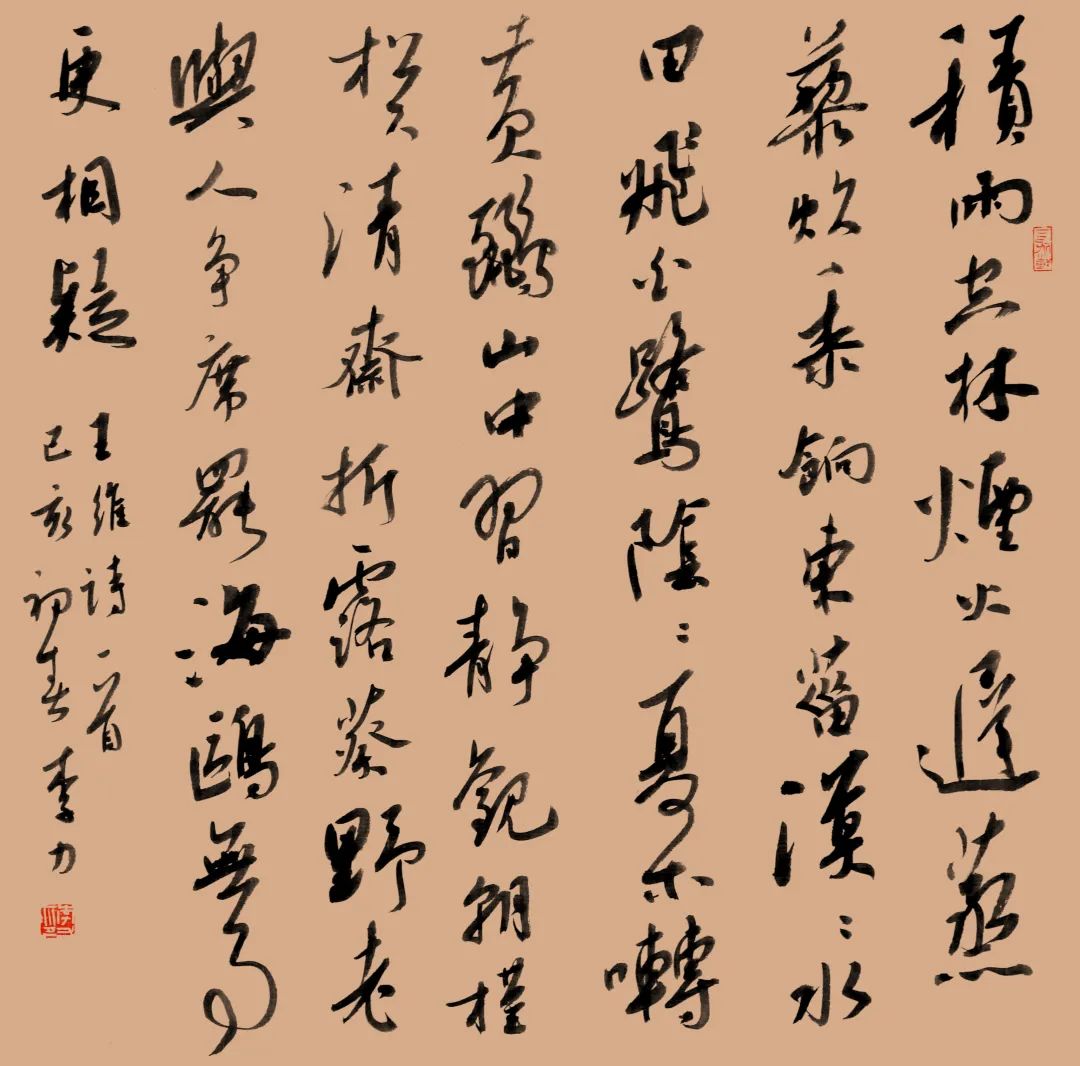 積雨空林煙火遲蒸
藜炊黍餉東菑漠〻水
田飛白鷺陰〻夏木囀
黄鸝山中習靜觀朝槿
松下清齋折露葵野老
與人争席罷海鷗無事
更相疑 王維詩一首
己亥初春李力